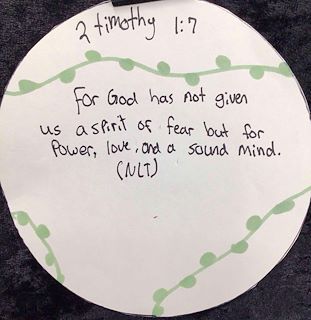 2 timothy 1:7
For God has not given
us a spirit of fear but for
Power, love, and a sound mind.
(NLT)